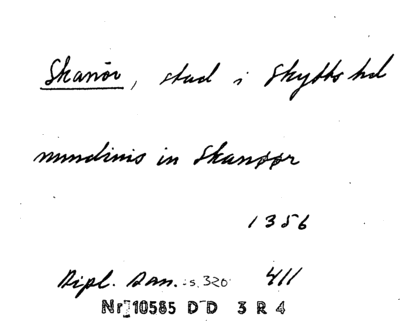 Skanör, stad i Skytts hd
nundinis in Skanøør
1356
Dipl. Dan. s. 320 4/1
Nr 10585 D D 3 R 4